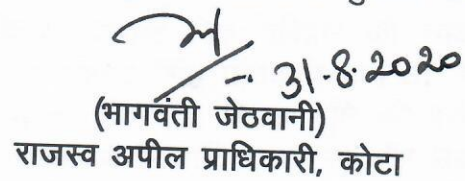 31.8.2020
(भागवंती जेठवानी)
राजस्व अपील प्राधिकारी, कोटा